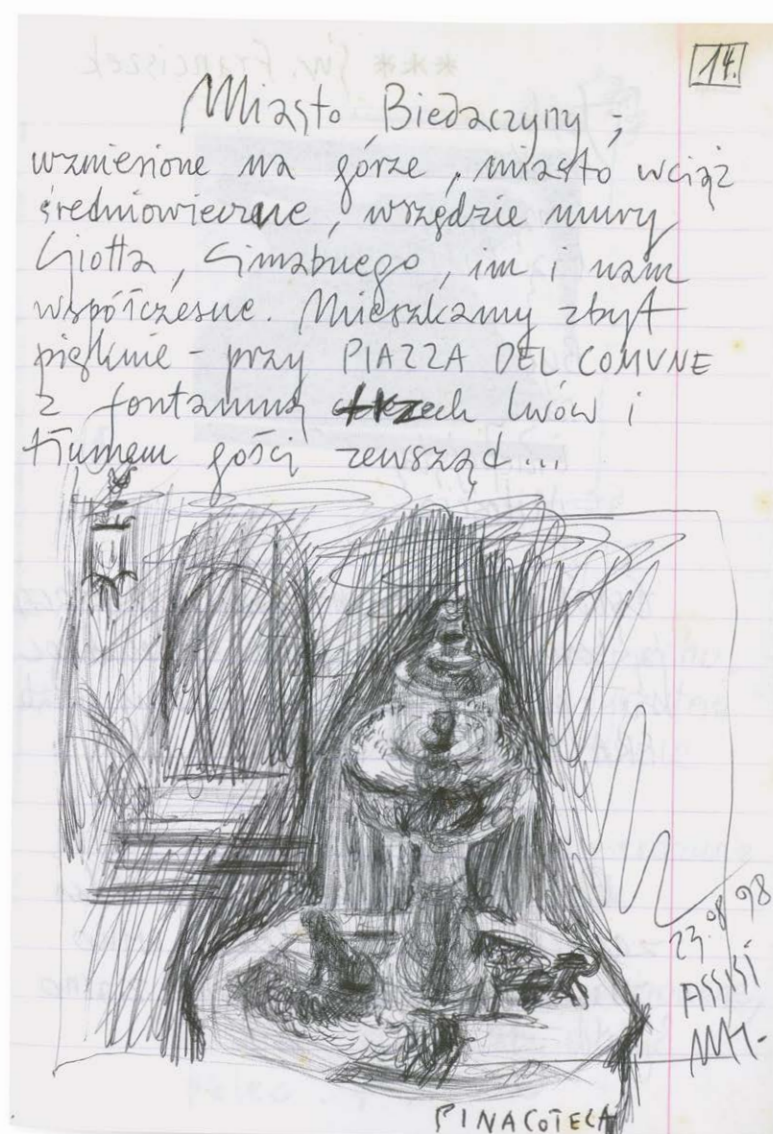 14.
Miasto Biedaczyny ;
wzniesione na górze, miasto wciąż
średniowieczne, wszędzie mury
Giotta, Cimabuego, im i nam
współczesne. Mieszkamy zbyt
pięknie - przy PIAZZA DEL COMUNE
z fontanną trzech lwów i
tłumem gości zewsząd...
23.08 98
ASSISI
PINACOTECA